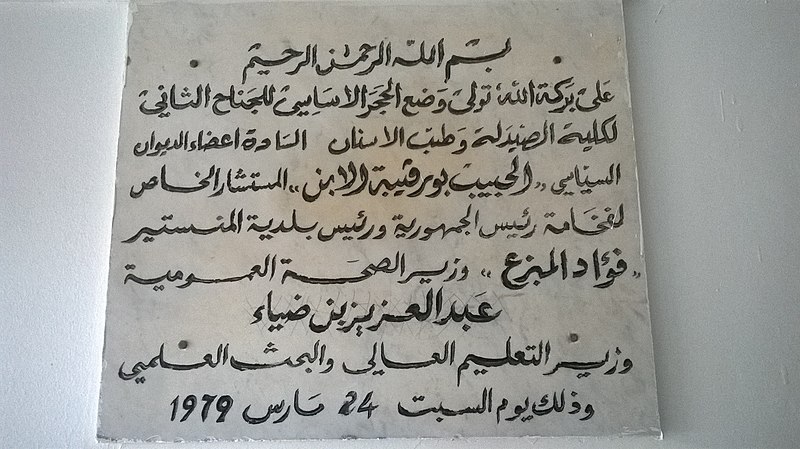 بسم الله الرحمن الرحيم
على بركة الله تولى وضع الحجر الاساسي للجناح الثاني
لكلية الصيدلة وطب الاسنان السادة اعضاء الديوان
السياسي "الحبيب بورقيبة الابن" المستشار الخاص
لفخامة رئيس الجمهورية ورئيس بلدية المنستير
"فؤاد المبزع" وزير الصحة العمومية
عبد العزيز بن ضياء
وزير التعليم العالي والبحث العلمي
وذلك يوم السبت 24 مارس 1979